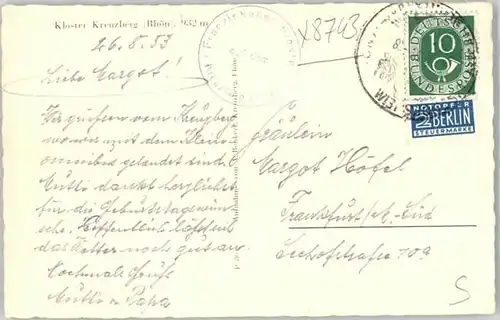 Kloster Kreuzberg (Rhön) 932 m
26.8.53
x8743
Liebe Margot!
Wir grüßen vom Kreuzberg
wo wir mit dem Klein-
omnibus gelandet sind.
Mutti dankt herzlichst
für die Geburtstagswün-
sche. Hoffentlich hält
das Wetter noch gut an.
Nochmals Gruß
Mutti u. Papa
Fräulein
Margot Höfel
Frankfurt/M. Süd
109
DEUTSCHE BUNDESPOST
10
NOTOPFER
2 BERLIN
STEUERMARKE
S